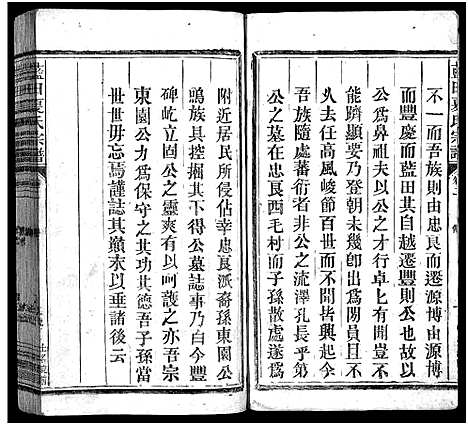 藍田夏氏宗譜
不一而吾族則由忠艮而遷源博由源博
而豐慶而藍田其自越遷豐則公也故以
公爲鼻祖夫以公之行誼公之文章其才
能躋顯要乃登朝未幾卽出而爲縣令又
以高風峻節而不聞皆與起今
吾族隨處蕃衍者非公之流澤孔長乎第
公之墓在忠艮西毛村而子孫散處遂爲
附近居民所侵佔幸忠艮派裔孫東園公
鳴族具控掘其下得公墓誌事乃白今豐
碑屹立固公之靈爽有以呵護之亦吾宗
東園公力爲保守之其功其德吾子孫當
世世毋忘焉謹誌其顚末以垂諸後云
藍田夏氏宗譜